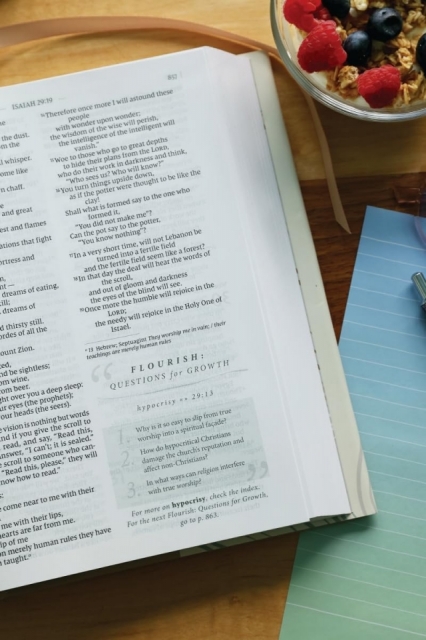 ISAIAH 29:19
the dust.
whisper.
ome like
n chaff.
and great
est and flames
ations that fight
ortress and
dreams of eating,
dreams of
thirsty still.
ordes of all the
ount Zion.
and be sightless:
om wine.
rom beer.
ght over you a deep sleep:
ur eyes (the prophets);
our heads (the seers).
e vision is nothing but words
nd if you give the scroll to
read, and say, "Read this,
answer, "I can't; it is sealed."
e scroll to someone who can-
"Read this, please," they will
now how to read."
come near to me with their
me with their lips,
hearts are far from me.
ip of me
n merely human rules they have
taught."
Therefore once more I will astound these
people
with wonder upon wonder;
the wisdom of the wise will perish,
the intelligence of the intelligent will
vanish."
Woe to those who go to great depths
to hide their plans from the LORD,
who do their work in darkness and think,
"Who sees us? Who will know?"
You turn things upside down,
as if the potter were thought to be like the
clay!
Shall what is formed say to the one who
formed it,
"You did not make me"?
Can the pot say to the potter,
"You know nothing"?
In a very short time, will not Lebanon be
turned into a fertile field
and the fertile field seem like a forest?
In that day the deaf will hear the words of
the scroll,
and out of gloom and darkness
the eyes of the blind will see.
Once more the humble will rejoice in the
LORD;
the needy will rejoice in the Holy One of
Israel.
a 13 Hebrew; Septuagint They worship me in vain; / their
teachings are merely human rules
FLOURISH:
QUESTIONS for GROWTH
hypocrisy on 29:13
1. Why is it so easy to slip from true
worship into a spiritual façade?
2. How do hypocritical Christians
damage the church's reputation and
affect non-Christians?
3. In what ways can religion interfere
with true worship?
For more on hypocrisy, check the index.
For the next Flourish: Questions for Growth,
go to p. 863.